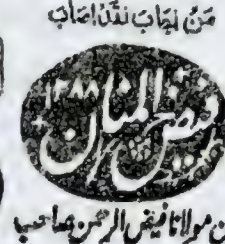 مَنْ اَجَابَ نَقَدْ اَصَابَ
فیض المنان
۱۲۸۸
ن مولانا فیض الرحمن صاحب